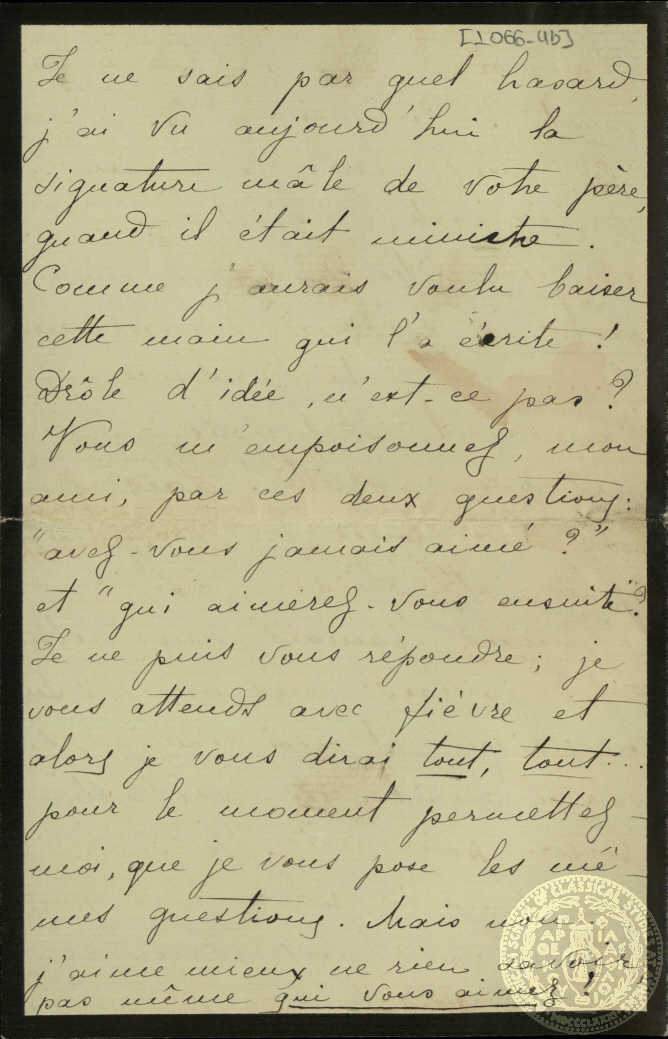 [1066-4b]
Je ne sais par quel hasard,
j'ai vu aujourd'hui la
signature mâle de votre père,
quand il était ministre.
Comme j'aurais voulu baiser
cette main qui l'a écrite !
Drôle d'idée, n'est-ce pas ?
Vous m'empoisonnez, mon
ami, par ces deux questions:
"avez-vous jamais aimé ?"
et "qui aimerez-vous ensuite"?
Je ne puis vous répondre ; je
vous attends avec fièvre et
alors je vous dirai tout, tout...
pour le moment permettez-
moi, que je vous pose les mê-
mes questions. Mais non..
j'aime mieux ne rien savoir
pas même qui vous aimez !